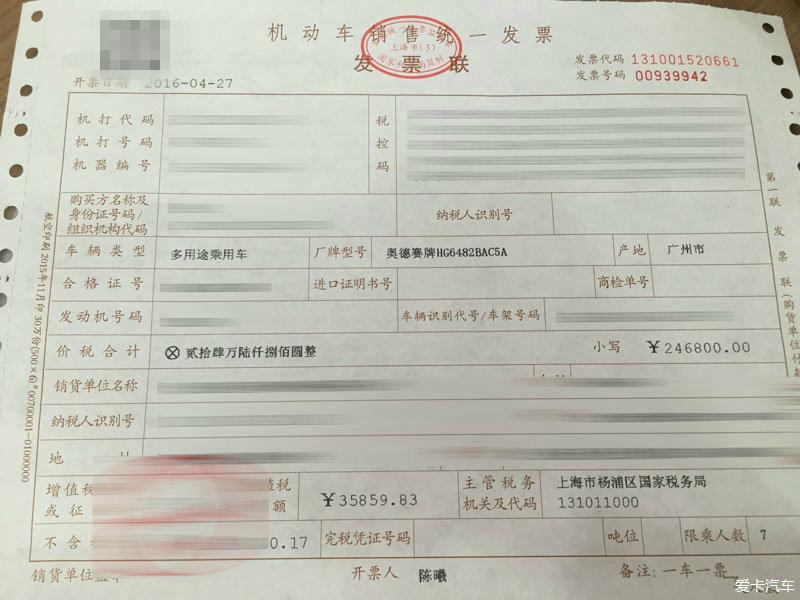 机动车销售统一发票
上海市(3)
国家税务局监制
发票联
发票代码 131001520661
发票号码 00939942
开票日期 2016-04-27
机打代码
机打号码
机器编号
税控码
购买方名称及
身份证号码/
组织机构代码
纳税人识别号
车辆类型 多用途乘用车 厂牌型号 奥德赛牌HG6482BAC5A 产地 广州市
合格证号 进口证明书号 商检单号
发动机号码 车辆识别代号/车架号码
价税合计 ⊗贰拾肆万陆仟捌佰圆整 小写 ¥246800.00
销货单位名称
纳税人识别号
地
增值税
或征
额 ¥35859.83 主管税务
机关及代码 上海市杨浦区国家税务局
131011000
不含 0.17 完税凭证号码 吨位 限乘人数 7
销货单位盖章 开票人 陈曦 备注:一车一票
第一联 发票联(购货单位付款
航空印刷2015年11月印30万份(500×6)#00700001-01000000
爱卡汽车